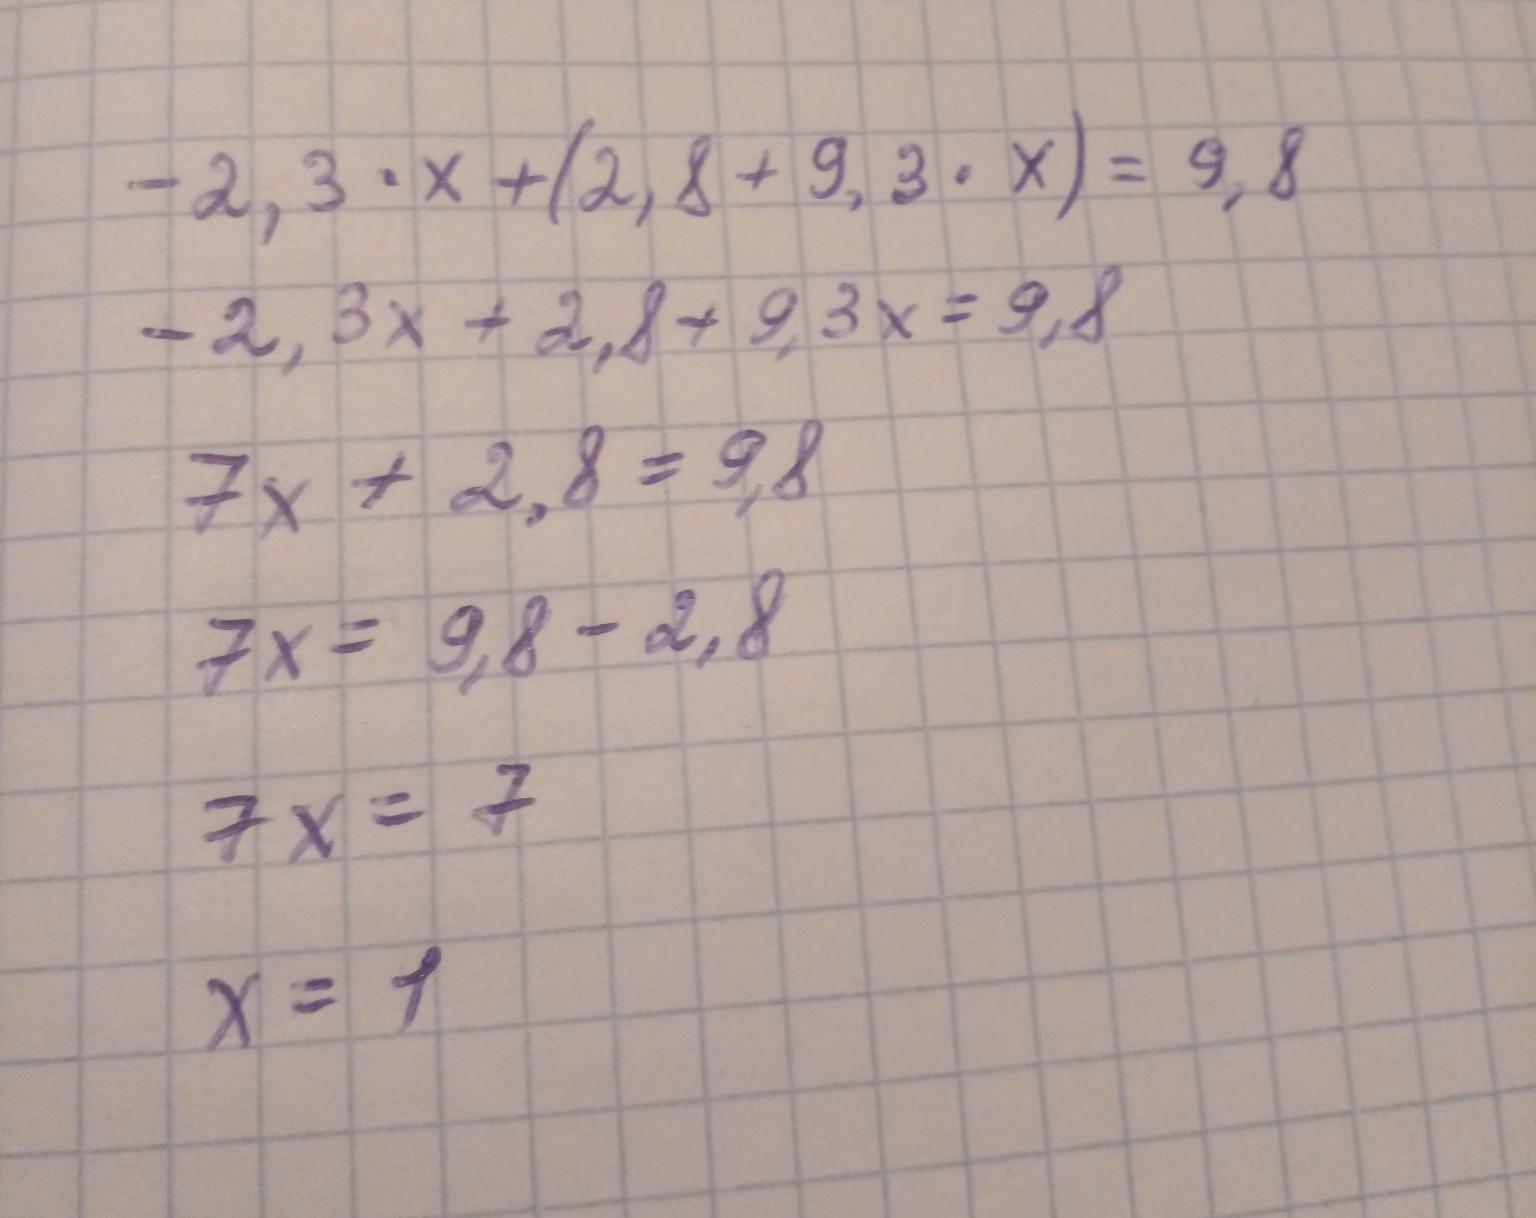 -2,3·x+(2,8+9,3·x)=9,8
-2,3x+2,8+9,3x=9,8
7x+2,8=9,8
7x=9,8-2,8
7x=7
x=1